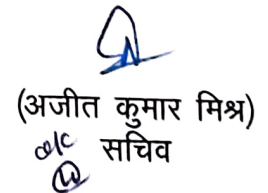 (अजीत कुमार मिश्र)
सचिव